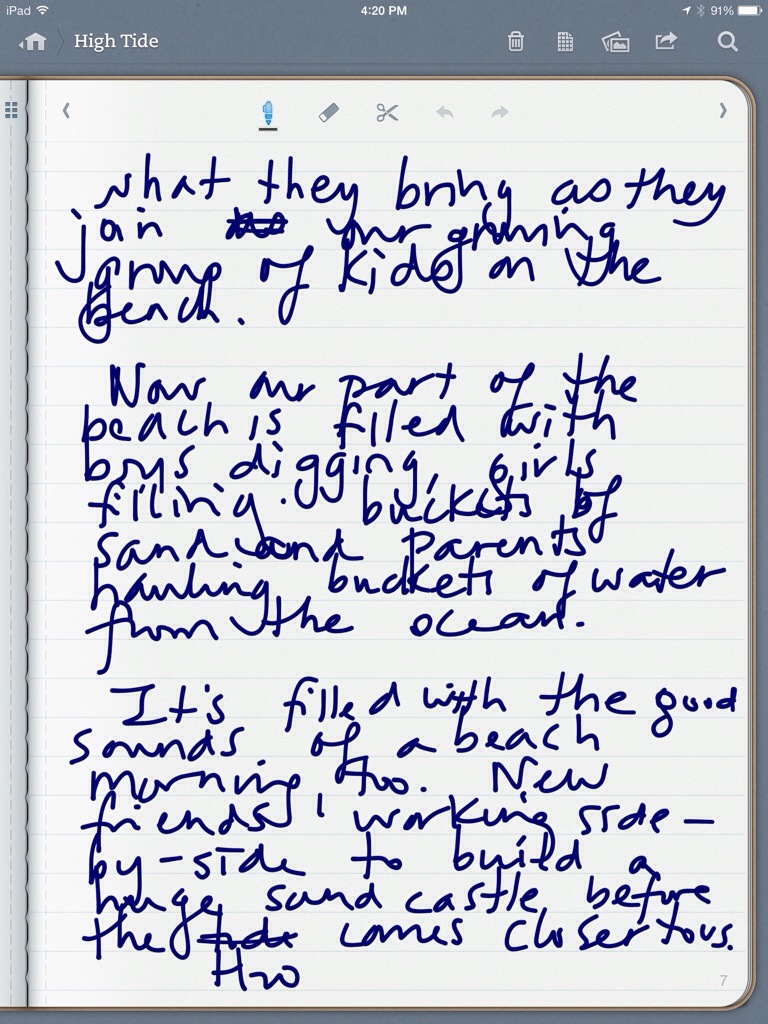 iPad
4:20 PM
91%
High Tide
what they bring as they
join our growing
group of kids on the
beach.
Now our part of the
beach is filled with
boys digging, girls
filling buckets of
sand and parents
hauling buckets of water
from the ocean.
It's filled with the good
sounds of a beach
morning too. New
friends working side-
by-side to build a
huge sand castle before
the tide comes closer to us.
H2O
7